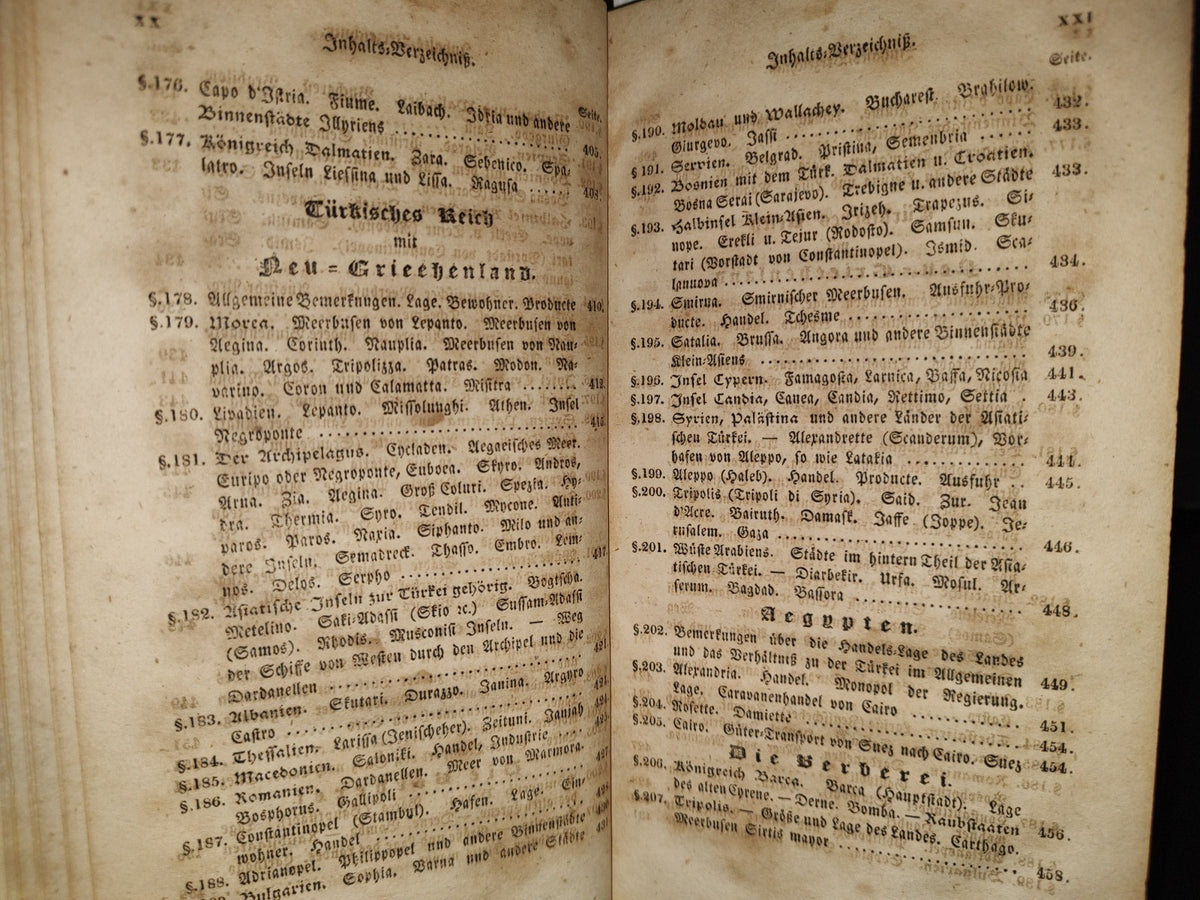 XX
Inhalts-Verzeichniß.
Seite.
§.176. Capo d'Istria. Fiume. Laibach. Idria und andere
Binnenstädte Illyriens .......... 405.
§.177. Königreich Dalmatien. Zara. Sebenico. Spa-
latro. Inseln Liessina und Lissa. Ragusa ...... 408.
Türkisches Reich
mit
Neu-Griechenland.
§.178. Allgemeine Bemerkungen. Lage. Bewohner. Producte 410.
§.179. Morea. Meerbusen von Lepanto. Meerbusen von
Aegina. Corinth. Nauplia. Meerbusen von Nau-
plia. Argos. Tripolizza. Patras. Modon. Na-
varino. Coron und Calamatta. Misitra ........ 412.
§.180. Livadien. Lepanto. Missolunghi. Athen. Insel
Negroponte ..............................
§.181. Der Archipelagus. Cycladen. Aegaeisches Meer.
Euripo oder Negroponte, Euboea. Skyro. Andros,
Arna. Zia. Aegina. Groß Coluri. Spezia. Hy-
dra. Thermia. Syro. Tendil. Mycone. Anti-
paros. Paros. Naxia. Siphanto. Milo und an-
dere Inseln. Semadreck. Thasso. Embro. Lem-
nos. Delos. Serpho ....................
§.182. Asiatische Inseln zur Türkei gehörig. Bogtscha.
Metelino. Saki-Adassi (Skio ꝛc.) Sussam-Adassi
(Samos). Rhodis. Musconisi Inseln. — Weg
der Schiffe von Westen durch den Archipel und die
Dardanellen ..............................
§.183. Albanien. Skutari. Durazzo. Janina. Argyro
Castro ..............................
§.184. Thessalien. Larissa (Jenischeher). Zeituni. Janjah
§.185. Macedonien. Saloniki. Handel, Industrie ....
§.186. Romanien. Dardanellen. Meer von Marmora.
Bosphorus. Gallipoli ....................
§.187. Constantinopel (Stambul). Hafen. Lage. Ein-
wohner. Handel ....................
§.188. Adrianopel. Philippopel und andere Binnenstädte
Bulgarien. Sophia. Varna und andere Städte
XXI
Inhalts-Verzeichniß.
Seite.
§.190. Moldau und Wallachey. Bucharest. Brahilow.
Giurgevo. Jassi .................... 432.
§ 191. Servien. Belgrad. Pristina, Semenbria ...... 433.
§.192. Bosnien mit dem Türk. Dalmatien u. Croatien.
Bosna Serai (Sarajevo). Trebigne u. andere Städte 433.
§.193. Halbinsel Klein-Asien. Jrizeh. Trapezus. Si-
nope. Erekli u. Tejur (Rodosto). Samsun. Sku-
tari (Vorstadt von Constantinopel). Ismid. Sca-
lanuova .............................. 434.
§.194. Smirna. Smirnischer Meerbusen. Ausfuhr-Pro-
ducte. Handel. Tchesme .................... 436.
§.195. Satalia. Brussa. Angora und andere Binnenstädte
Klein-Asiens .............................. 439.
§.196. Insel Cypern. Famagosta, Larnica, Baffa, Nicosia 441.
§.197. Insel Candia, Canea, Candia, Rettimo, Settia . 443.
§.198. Syrien, Palästina und andere Länder der Asiati-
schen Türkei. — Alexandrette (Scanderum), Vor-
hafen von Aleppo, so wie Latakia ............ 444.
§.199. Aleppo (Haleb). Handel. Producte. Ausfuhr .. 445.
§.200. Tripolis (Tripoli di Syria). Said. Zur. Jean
d'Acre. Bairuth. Damask. Jaffe (Joppe). Je-
rusalem. Gaza .............................. 446.
§.201. Wüste Arabiens. Städte im hintern Theil der Asia-
tischen Türkei. — Diarbekir. Urfa. Mosul. Ar-
serum. Bagdad. Bassora .................... 448.
Aegypten.
§.202. Bemerkungen über die Handels-Lage des Landes
und das Verhältniß zu der Türkei im Allgemeinen 449.
§.203. Alexandria. Handel. Monopol der Regierung.
Lage. Caravanenhandel von Cairo ............ 451.
§.204. Rosette. Damiette .................... 454.
§.205. Cairo. Güter-Transport von Suez nach Cairo. Suez 454.
Die Berberei.
§.206. Königreich Barca. Barca (Hauptstadt). Lage
des alten Cyrene. — Derne. Bomba. — Raubstaaten 456.
§.207. Tripolis. — Größe und Lage des Landes. Carthago.
Meerbusen Sirtis mayor .................... 458.